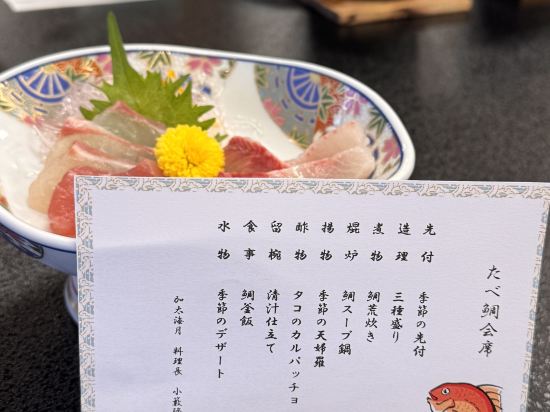 たべ鯛会席
先付 季節の先付
造理 三種盛り
煮物 鯛荒炊き
焜炉 鯛スープ鍋
揚物 季節の天婦羅
酢物 タコのカルパッチョ
留椀 清汁仕立て
食事 鯛釜飯
水物 季節のデザート
加太海月 料理長 小薮